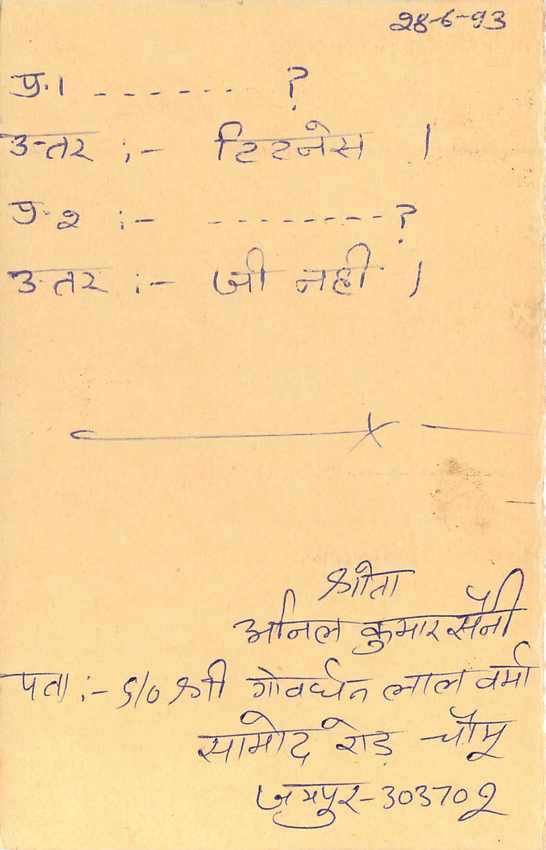 28-6-93
प्र.1 ------- ?
उत्तर :- टिटनेस ।
प्र.२ :- --------- ?
उत्तर :- जी नही ।
श्रोता
अनिल कुमार सैनी
पता :- S/o श्री गोवर्धन लाल वर्मा
सामोद रोड चौमू
जयपुर-303702